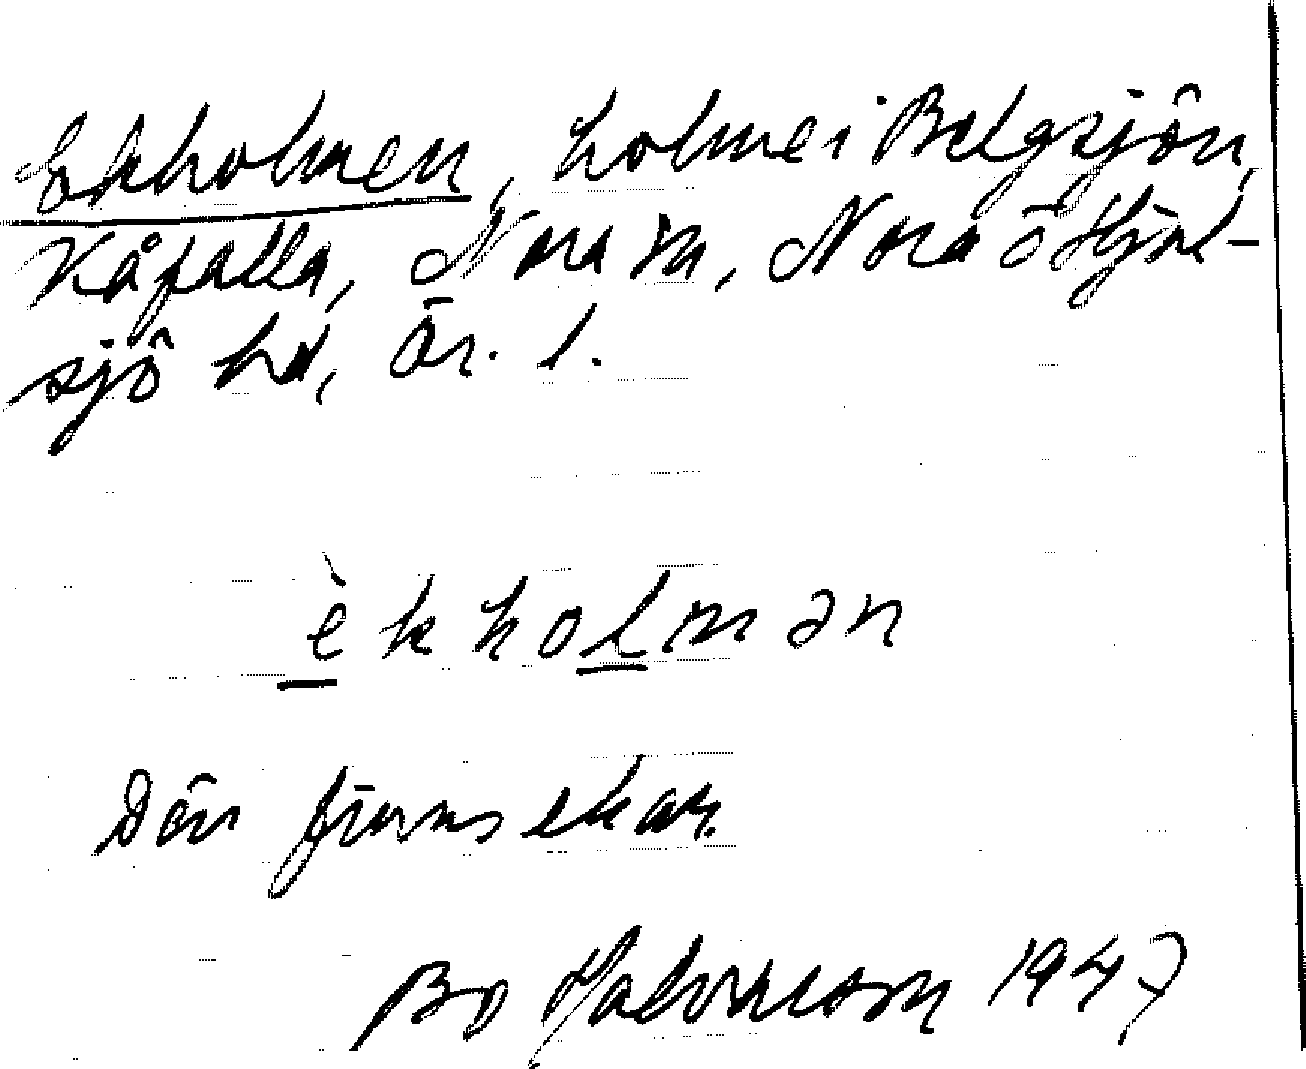 Ekholmen, holme i Belgsjön,
Kåfalla, Nora sn, Nora ö Hjul-
sjö hd, Ör. l.
èkholmən
Där finns ekar.
Bo Halvarsson 1947